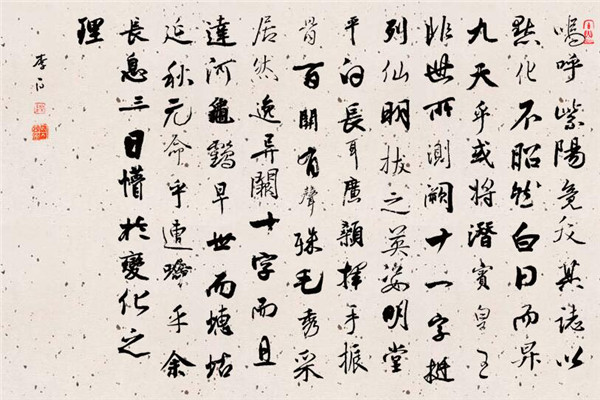 嗚呼紫陽竟夭其誌以
默化不昭然白日而昇
九天乎或将潛賓皇王
非世所測闕十一字挺
列仙明拔之英姿明堂
平白長耳廣顙揮手振
骨百關有聲殊毛秀采
居然逸異闕十字而且
達河龜鶴早世而蟪蛄
延秋元命乎乎余
長息三日懵於變化之
理
李白